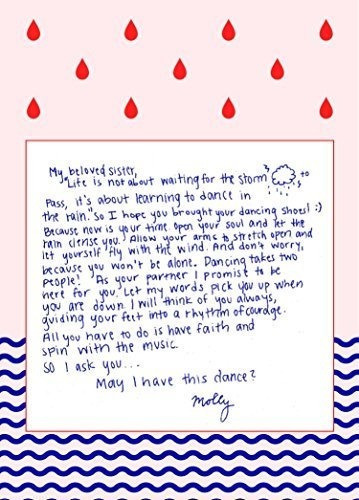 My beloved sister,
"Life is not about waiting for the storm to
Pass, it's about learning to dance in
the rain." So I hope you brought your dancing shoes! :)
Because now is your time open your soul and let the
rain clense you. Allow your arms to stretch open and
let yourself fly with the wind. And don't worry,
because you won't be alone. Dancing takes two
people! As your partner I promise to be
here for you. Let my words pick you up when
you are down. I will think of you always,
guiding your feet into a rhythm of courage.
All you have to do is have faith and
spin with the music.
So I ask you...
May I have this dance?
Molly